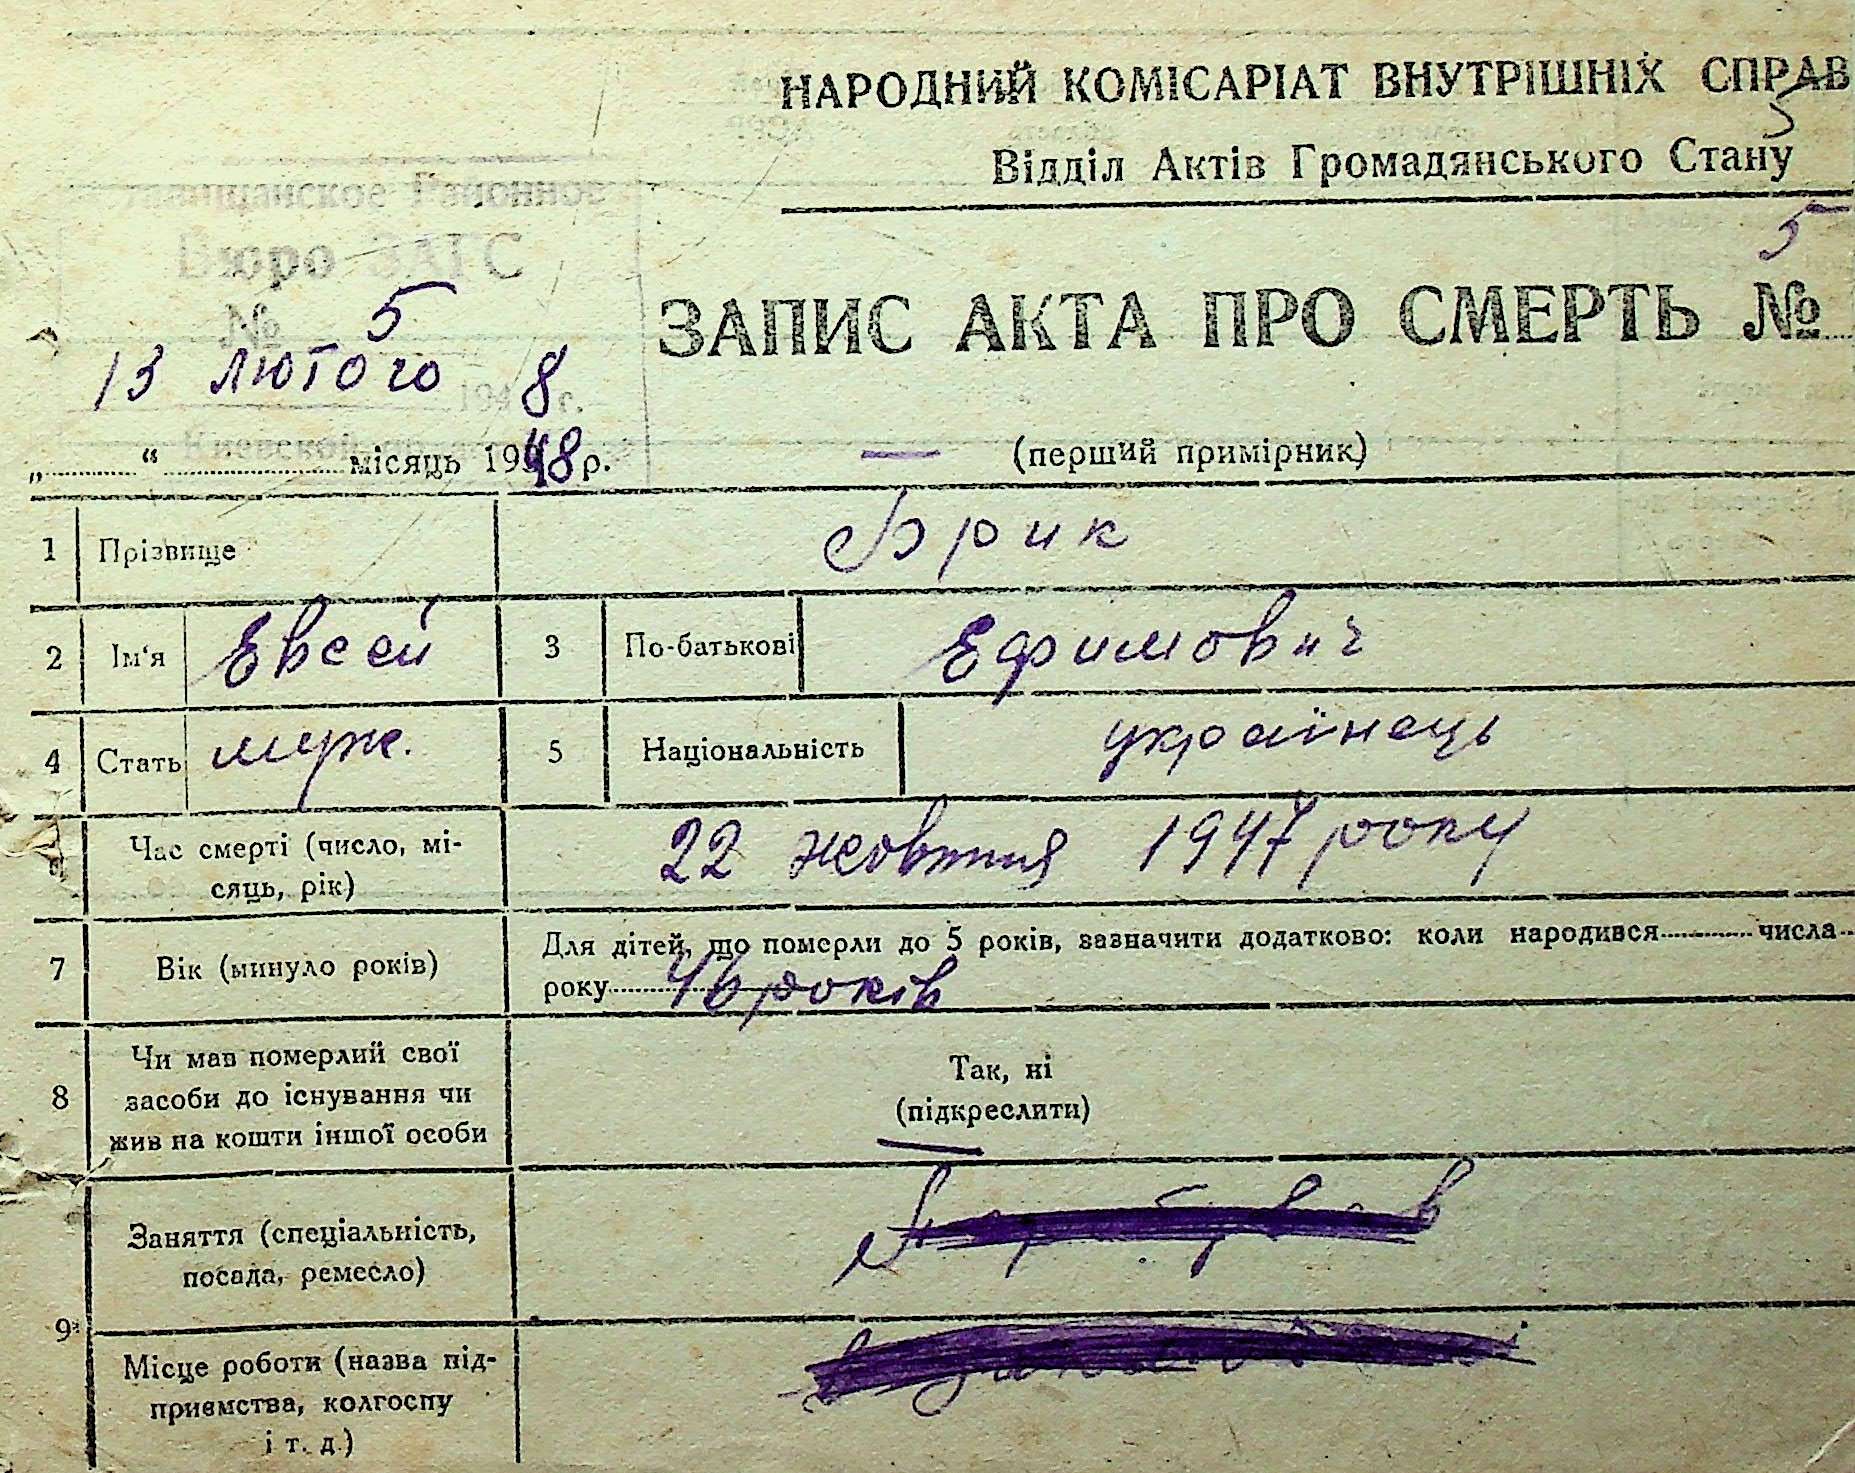 НАРОДНИЙ КОМІСАРІАТ ВНУТРІШНІХ СПРАВ
5
Відділ Актів Громадянського Стану
Районное
Бюро ЗАГС
№ 5
5
ЗАПИС АКТА ПРО СМЕРТЬ №
13 лютого 1948 г.
Киевской
„ “ місяць 1948 р.
— (перший примірник)
1 Прізвище Брик
2 Ім‘я Евсей 3 По-батькові Ефимович
4 Стать муж. 5 Національність українець
Час смерті (число, мі-
сяць, рік) 22 жовтня 1947 року
7 Вік (минуло років) Для дітей, що померли до 5 років, зазначити додатково: коли народився числа
року 46 років
8 Чи мав померлий свої
засоби до існування чи
жив на кошти іншої особи
Так, ні
(підкреслити)
9
Заняття (спеціальність,
посада, ремесло)
Місце роботи (назва під-
приємства, колгоспу
і т. д.)